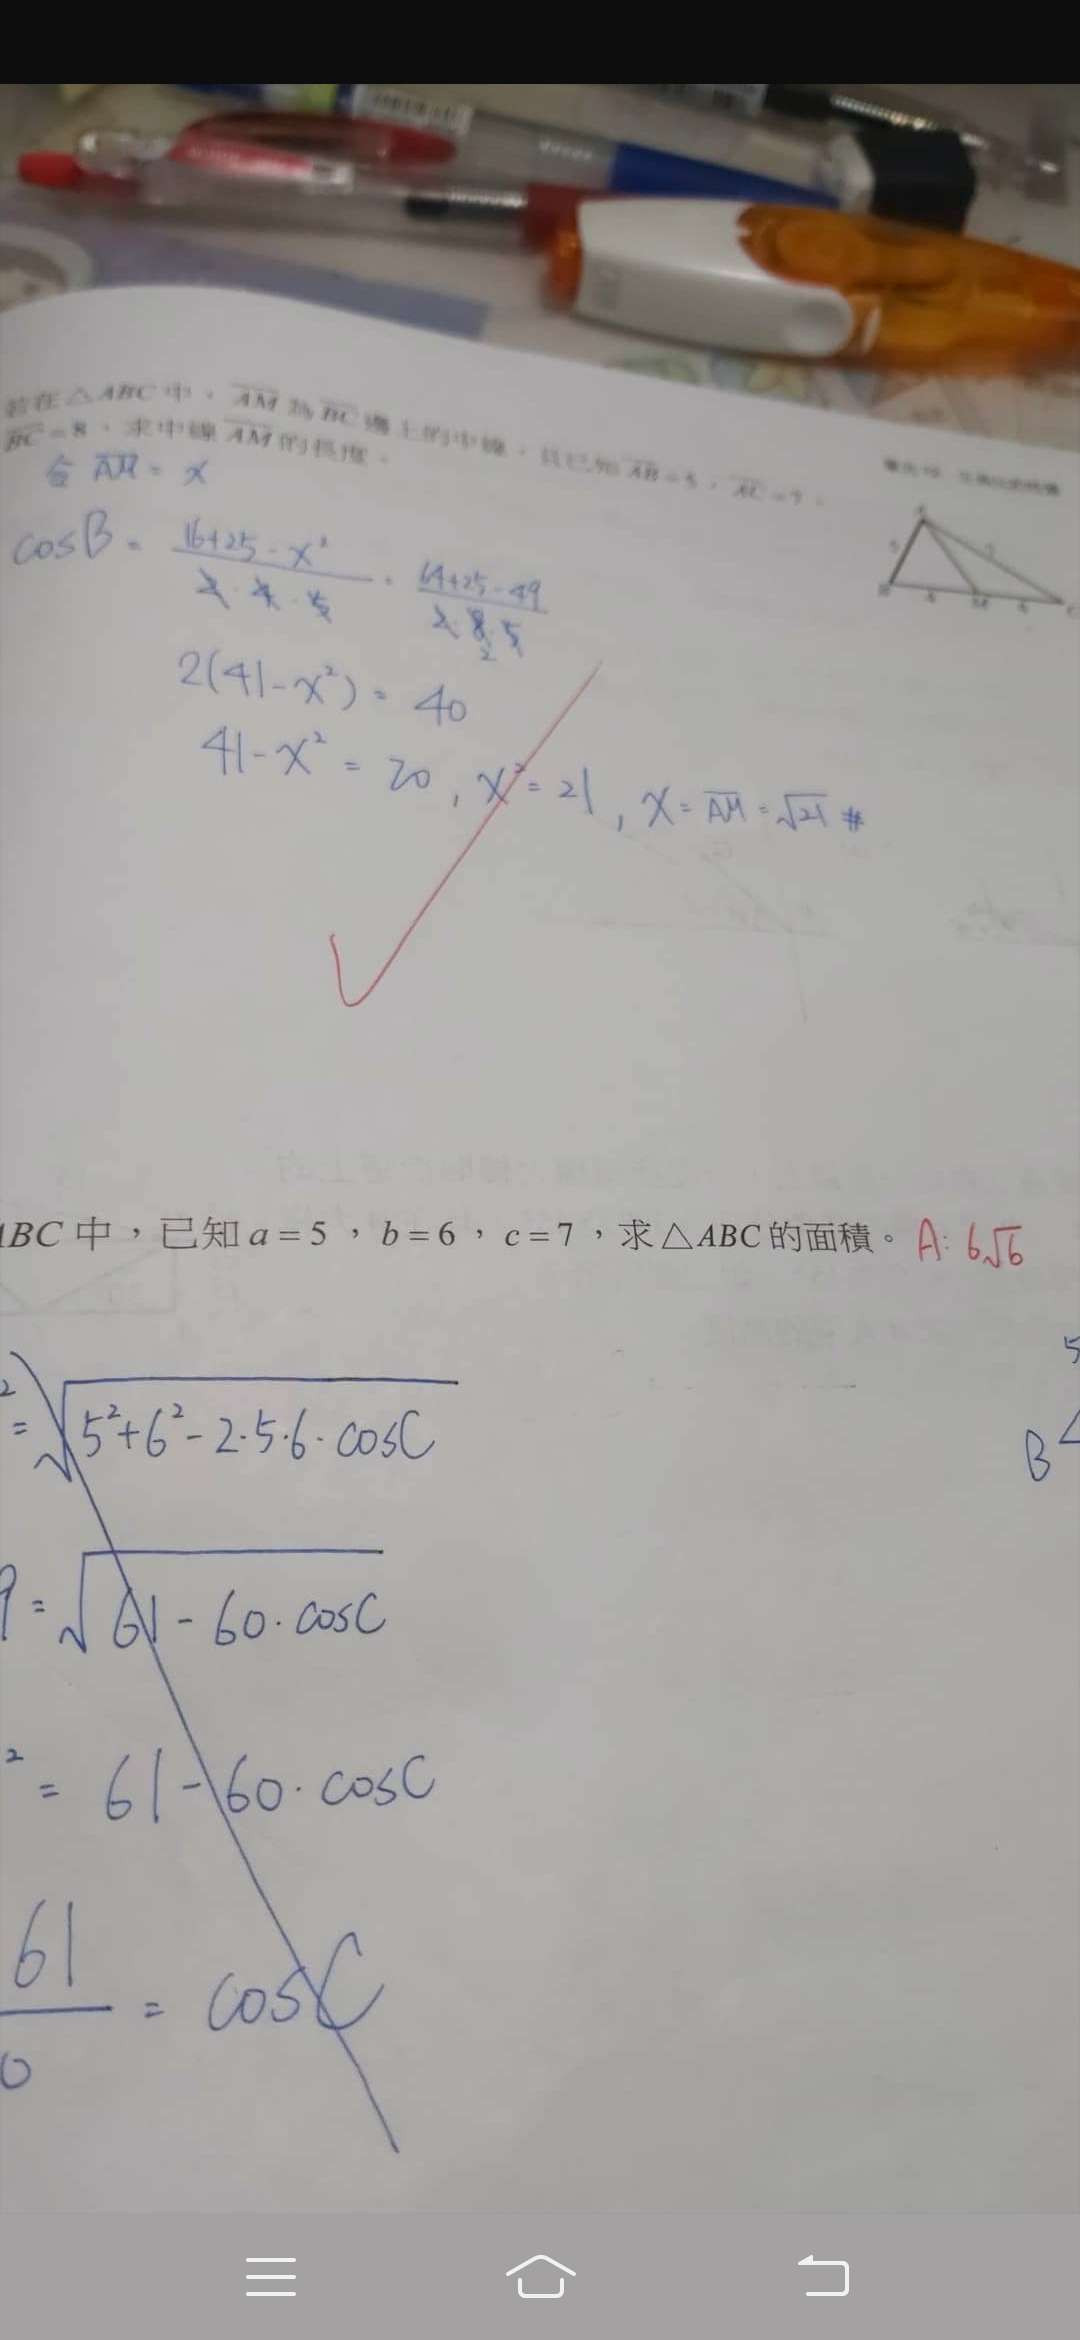 若在△ABC中，AM為BC邊上的中線，且已知AB=5，AC=7，
BC=8，求中線AM的長度。
令 AM = x
cosB = 16+25-x² / 2·4·5 = 64+25-49 / 2·8·5
2
2(41-x²) = 40
41-x² = 20, x² = 21, x = AM = √21 #
ABC中，已知a=5，b=6，c=7，求△ABC的面積。 A: 6√6
² = √5²+6²-2·5·6·cosC
5
B
9 = √61-60·cosC
² = 61-60·cosC
61 / 0 = cosC